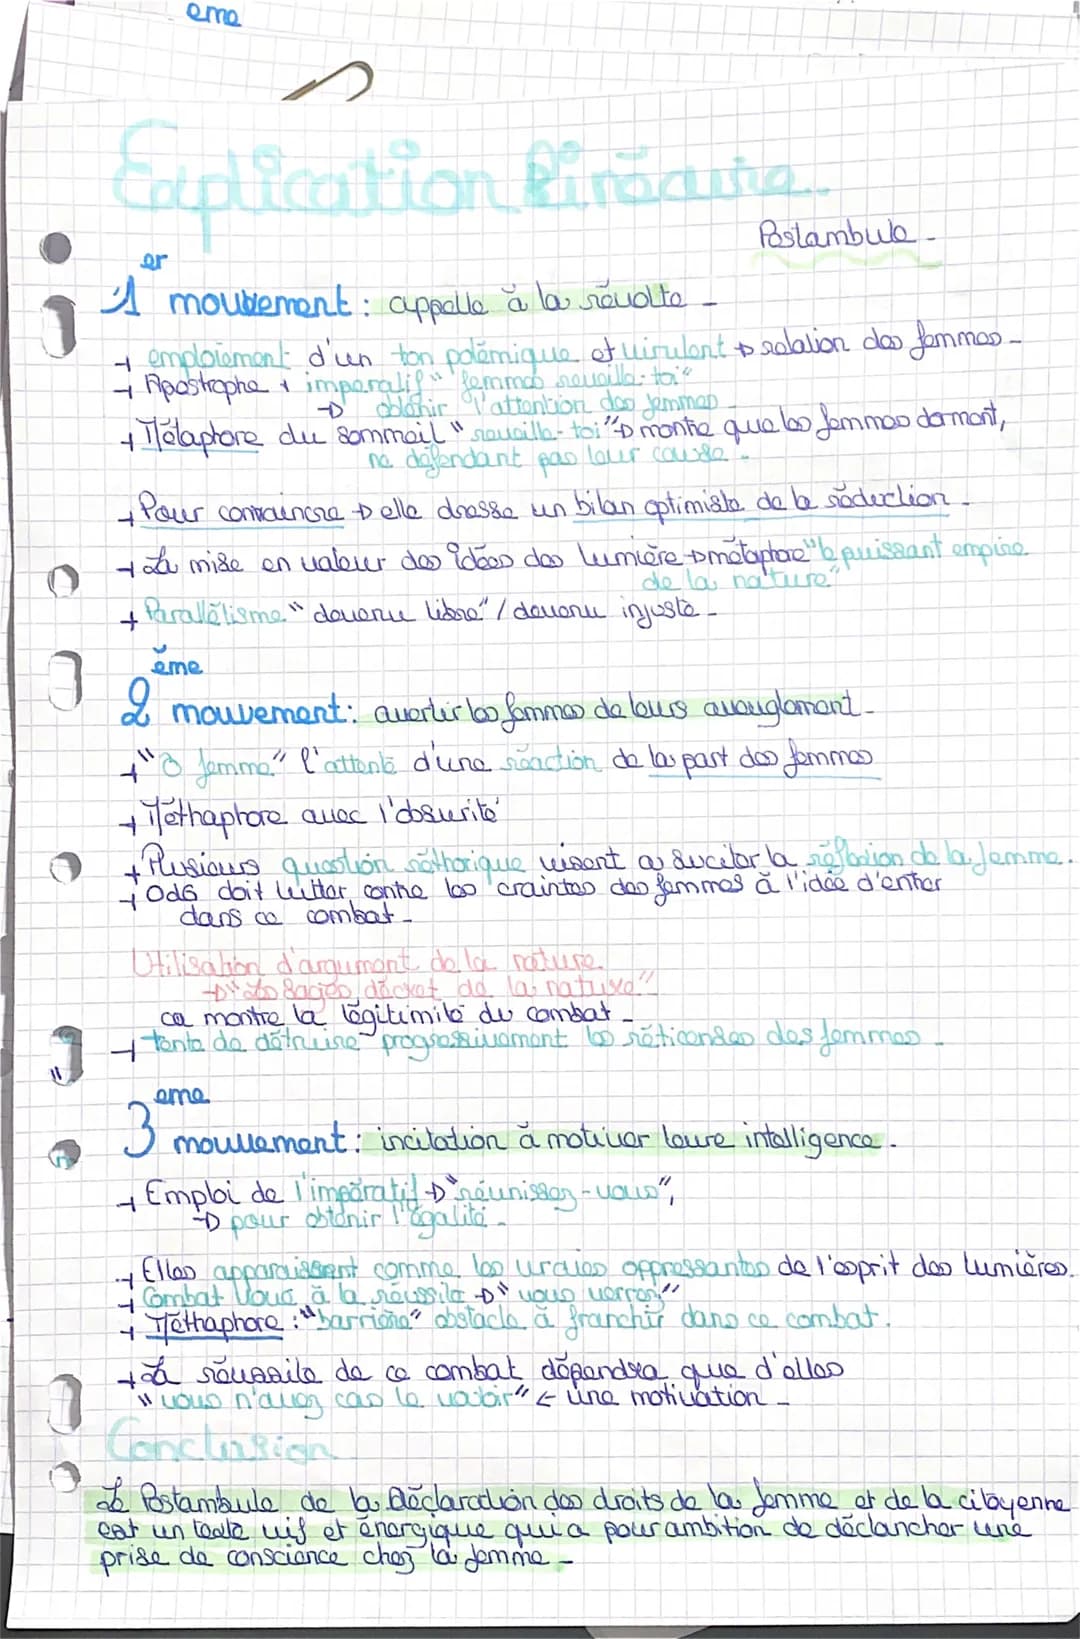 eme
Explication linéaire.
Postambule.
1er mouvement : appelle à la révolte.
→ emploiement d'un ton polémique et virulent → relation des femmes.
→ Apostrophe + imperatif "femmes reveille-toi"
→ obtenir l'attention des femmes.
→ Métaphore du sommeil "reveille-toi" → montre que les femmes dorment,
ne défendant pas leur cause.
→ Pour convaincre → elle dresse un bilan optimiste de la séduction.
→ La mise en valeur des idées des lumière → métaphore "le puissant empire
de la nature"
→ Parallélisme "devenu libre" / devenu injuste.
2ème mouvement : avertir les femmes de leurs aveuglement.
→ "Ô femme" l'attente d'une réaction de la part des femmes
→ Méthaphore avec l'obsurité
→ Plusieurs question réthorique visant a suciter la réflexion de la femme.
→ OdG doit lutter contre les craintes des femmes à l'idée d'enter
dans ce combat.
Utilisation d'argument de la nature.
→ "les sages décret de la nature"
ca montre la légitimité du combat.
→ tente de détruire progressivement les réticenses des femmes.
3eme mouvement : incitation à motiver leure intelligence.
→ Emploi de l'impératif → "réunissez-vous",
→ pour obtenir l'égalité.
→ Elles apparaissent comme les vraies oppressantes de l'esprit des Lumières.
→ Combat Voué à la réussite → "vous verrez"
→ Méthaphore : "barrière" obstacle à franchir dans ce combat.
→ La réussite de ce combat dépendra que d'elles
"vous n'avez cas le valoir" ← une motivation.
Conclusion
Le Postambule de la Déclaration des droits de la femme et de la citoyenne
est un texte vif et énergique qui a pour ambition de déclancher une
prise de conscience chez la femme.